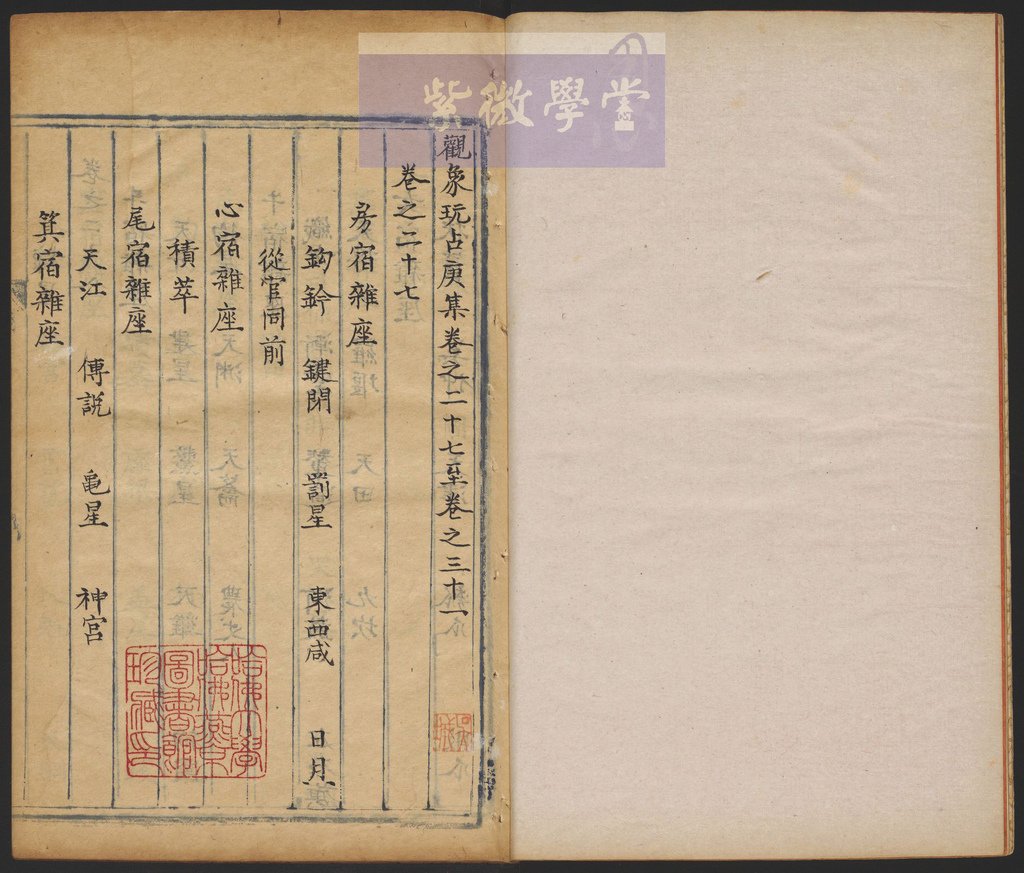 紫微學堂
觀象玩占庚集卷之二十七至卷之三十一
卷之二十七
房宿雜座
鈎鈐 鍵閉 罰星 東西咸 日月
從官同前
心宿雜座
積卒
尾宿雜座
天江 傳説 龜星 神宮
箕宿雜座
哈佛大學
哈佛燕京
圖書館
珍藏印